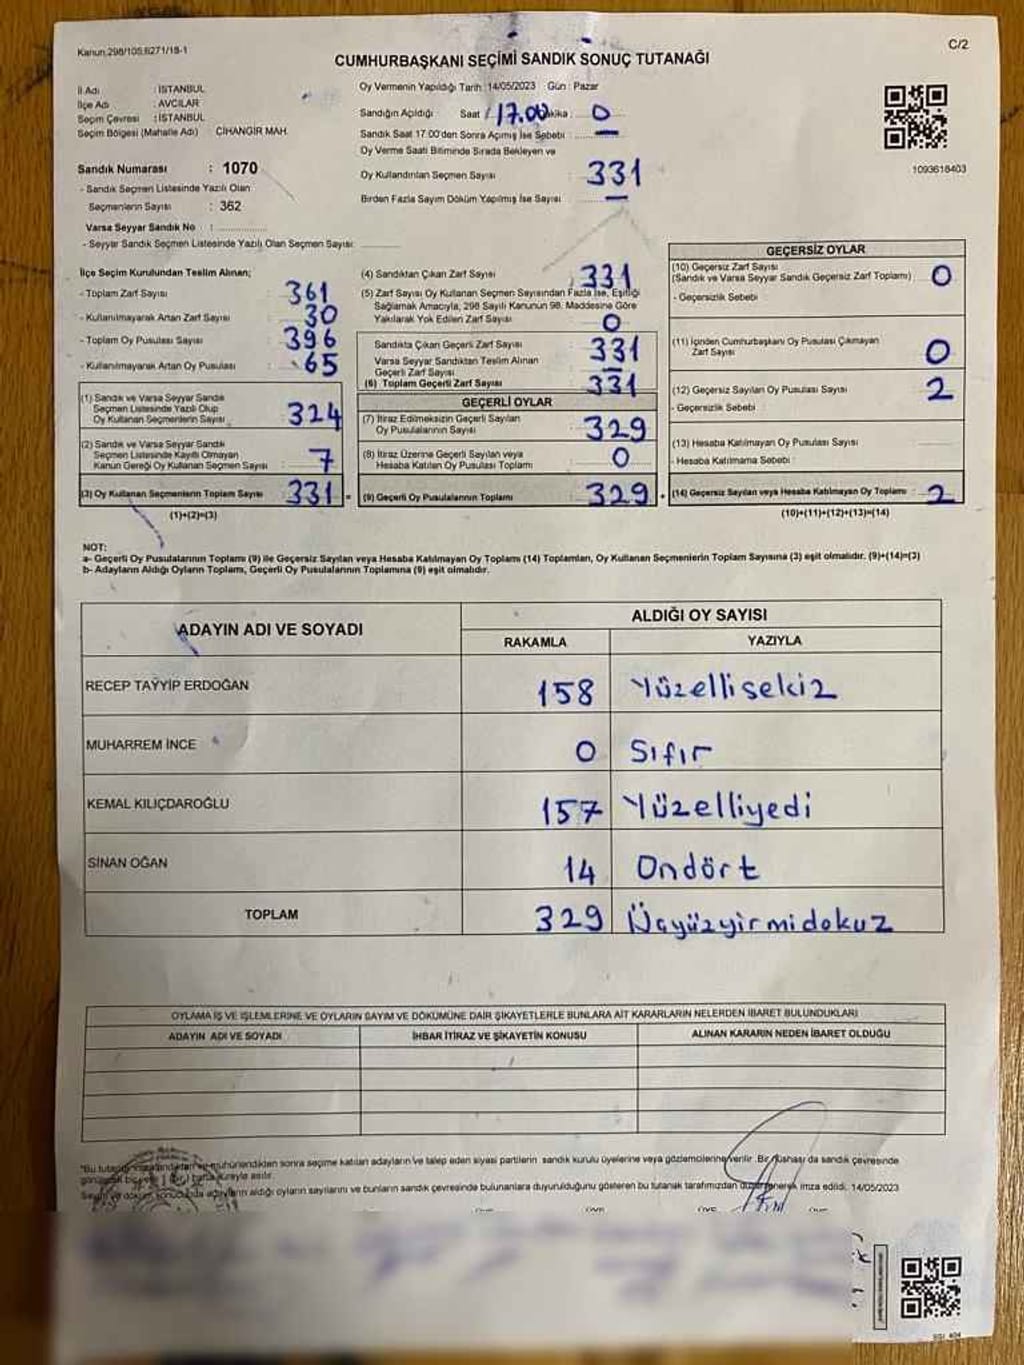 Kanun:298/105,6271/18-1
C/2
CUMHURBAŞKANI SEÇİMİ SANDIK SONUÇ TUTANAĞI
İl Adı : İSTANBUL
İlçe Adı : AVCILAR
Seçim Çevresi : İSTANBUL
Seçim Bölgesi (Mahalle Adı) CİHANGİR MAH.
Sandık Numarası : 1070
- Sandık Seçmen Listesinde Yazılı Olan
Seçmenlerin Sayısı : 362
Varsa Seyyar Sandık No :
- Seyyar Sandık Seçmen Listesinde Yazılı Olan Seçmen Sayısı:
Oy Vermenin Yapıldığı Tarih :14/05/2023 Gün : Pazar
Sandığın Açıldığı : Saat 17.00 Dakika : 0
Sandık Saat 17:00'den Sonra Açımış İse Sebebi : —
Oy Verme Saati Bitiminde Sırada Bekleyen ve
Oy Kullandırılan Seçmen Sayısı 331
Birden Fazla Sayım Döküm Yapılmış İse Sayısı : —
1093618403
İlçe Seçim Kurulundan Teslim Alınan;
- Toplam Zarf Sayısı : 361
- Kullanılmayarak Artan Zarf Sayısı : 30
- Toplam Oy Pusulası Sayısı : 396
- Kullanılmayarak Artan Oy Pusulası : 65
(1) Sandık ve Varsa Seyyar Sandık
Seçmen Listesinde Yazılı Olup
Oy Kullanan Seçmenlerin Sayısı : 324
(2) Sandık ve Varsa Seyyar Sandık
Seçmen Listesinde Kayıtlı Olmayan
Kanun Gereği Oy Kullanan Seçmen Sayısı : 7
(3) Oy Kullanan Seçmenlerin Toplam Sayısı : 331 =
(1)+(2)=(3)
(4) Sandıktan Çıkan Zarf Sayısı : 331
(5) Zarf Sayısı Oy Kullanan Seçmen Sayısından Fazla İse, Eşitliği
Sağlamak Amacıyla, 298 Sayılı Kanunun 98. Maddesine Göre
Yakılarak Yok Edilen Zarf Sayısı : 0
Sandıkta Çıkan Geçerli Zarf Sayısı : 331
Varsa Seyyar Sandıktan Teslim Alınan
Geçerli Zarf Sayısı : —
(6) Toplam Geçerli Zarf Sayısı : 331
GEÇERLİ OYLAR
(7) İtiraz Edilmeksizin Geçerli Sayılan
Oy Pusulalarının Sayısı : 329
(8) İtiraz Üzerine Geçerli Sayılan veya
Hesaba Katılan Oy Pusulası Toplamı : 0
(9) Geçerli Oy Pusulalarının Toplamı : 329 +
GEÇERSİZ OYLAR
(10) Geçersiz Zarf Sayısı
(Sandık ve Varsa Seyyar Sandık Geçersiz Zarf Toplamı) : 0
- Geçersizlik Sebebi :
(11) İçinden Cumhurbaşkanı Oy Pusulası Çıkmayan
Zarf Sayısı : 0
(12) Geçersiz Sayılan Oy Pusulası Sayısı : 2
- Geçersizlik Sebebi :
(13) Hesaba Katılmayan Oy Pusulası Sayısı :
- Hesaba Katılmama Sebebi :
(14) Geçersiz Sayılan veya Hesaba Katılmayan Oy Toplamı : 2
(10)+(11)+(12)+(13)=(14)
NOT:
a- Geçerli Oy Pusulalarının Toplamı (9) ile Geçersiz Sayılan veya Hesaba Katılmayan Oy Toplamı (14) Toplamları, Oy Kullanan Seçmenlerin Toplam Sayısına (3) eşit olmalıdır. (9)+(14)=(3)
b- Adayların Aldığı Oyların Toplamı, Geçerli Oy Pusulalarının Toplamına (9) eşit olmalıdır.
ADAYIN ADI VE SOYADI
ALDIĞI OY SAYISI
RAKAMLA YAZIYLA
RECEP TAYYİP ERDOĞAN 158 Yüzellisekiz
MUHARREM İNCE 0 Sıfır
KEMAL KILIÇDAROĞLU 157 Yüzelliyedi
SİNAN OĞAN 14 Ondört
TOPLAM 329 Üçyüzyirmidokuz
OYLAMA İŞ VE İŞLEMLERİNE VE OYLARIN SAYIM VE DÖKÜMÜNE DAİR ŞİKAYETLERLE BUNLARA AİT KARARLARIN NELERDEN İBARET BULUNDUKLARI
ADAYIN ADI VE SOYADI İHBAR İTİRAZ VE ŞİKAYETİN KONUSU ALINAN KARARIN NEDEN İBARET OLDUĞU
sonra seçime katılan adayların ve talep eden siyasi partilerin sandık kurulu üyelerine veya gözlemcilerine verilir. Bir nüshası da sandık çevresinde
adayların aldığı oyların sayılarını ve bunların sandık çevresinde bulunanlara duyurulduğunu gösteren bu tutanak tarafımızdan düzenlenerek imza edildi. 14/05/2023